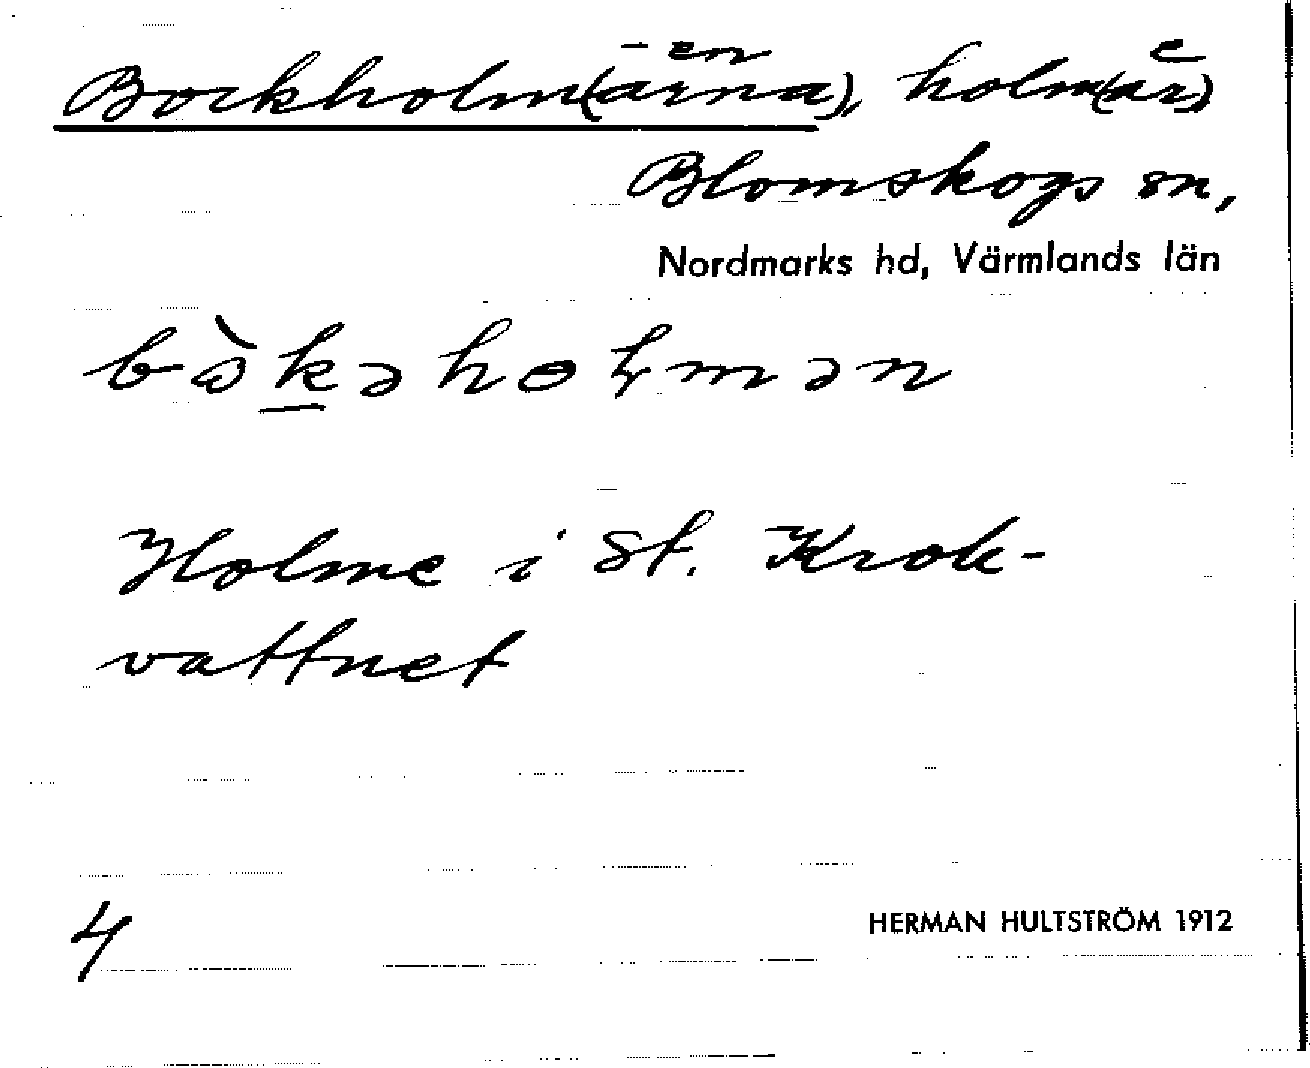 – en
Bockholm(arna), holm(ar) e
Blomskogs sn,
Nordmarks hd, Värmlands län
Holme i St. Krok-
vattnet
4
HERMAN HULTSTRÖM 1912